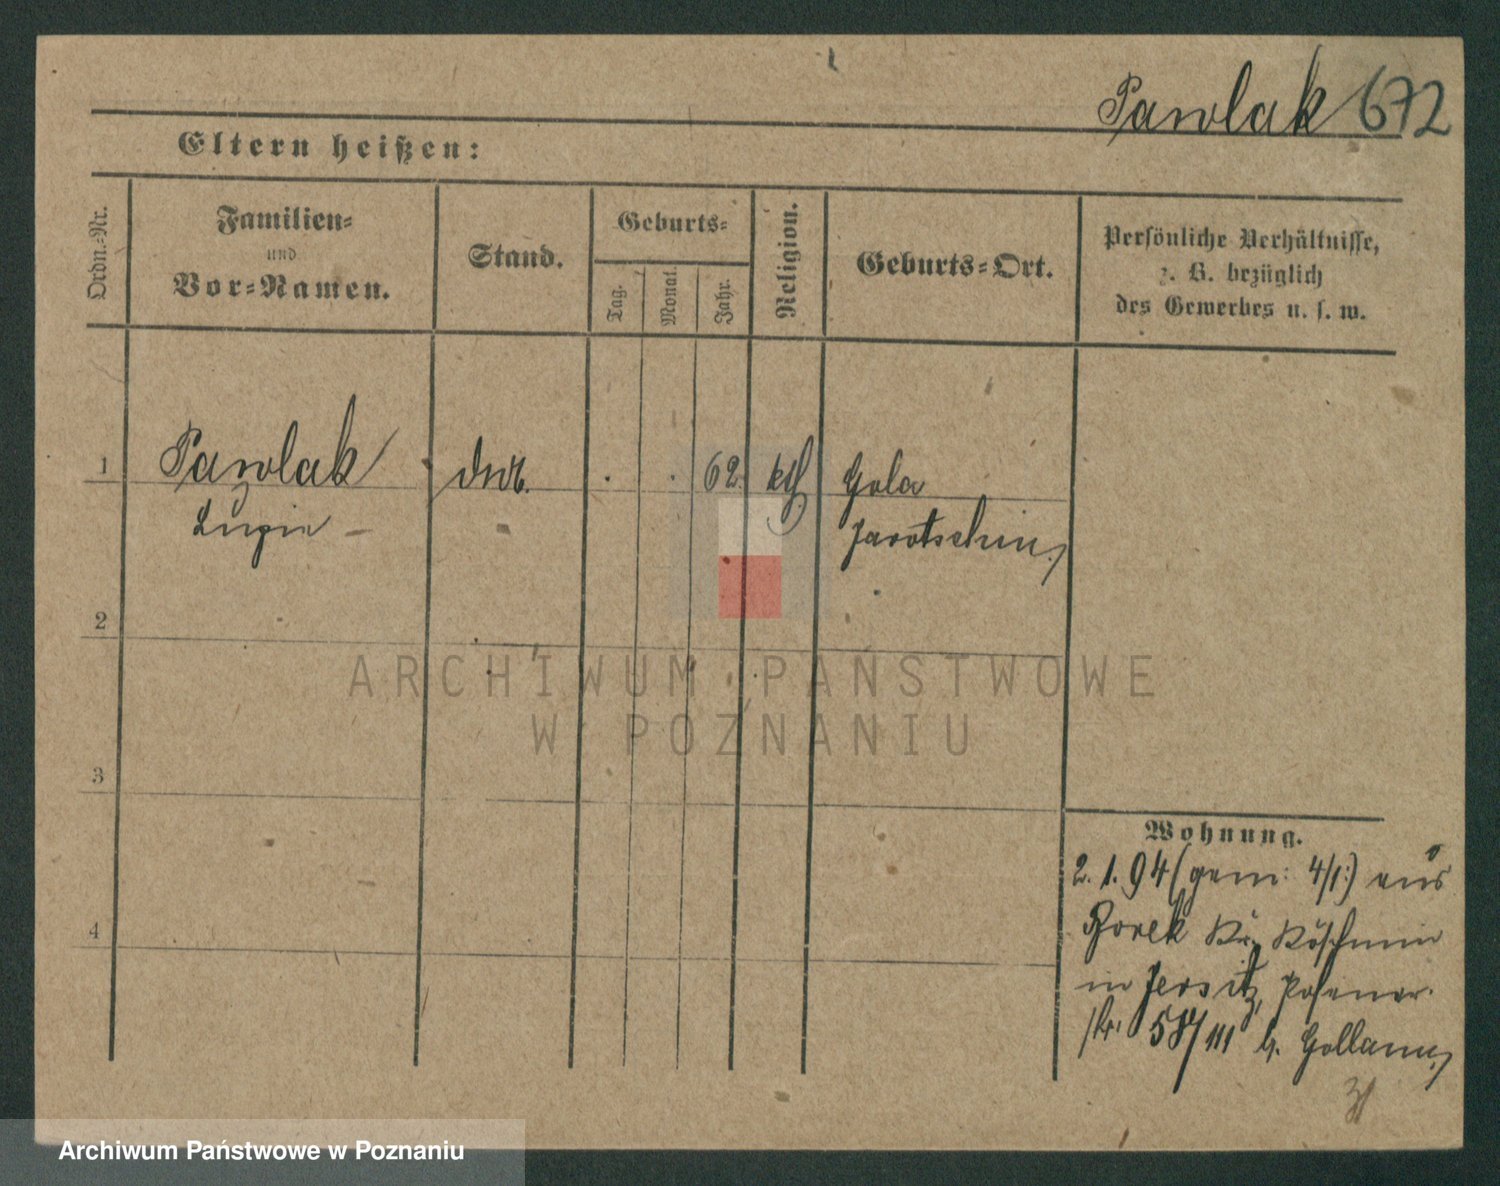 Pawlak 672
Eltern heißen:
Ordn.-Nr.
Familien-
und
Vor-Namen.
Stand.
Geburts-
Tag.
Monat.
Jahr.
Religion.
Geburts-Ort.
Persönliche Verhältnisse,
z. B. bezüglich
des Gewerbes u. s. w.
1 Pawlak . . 62 kth Gola
Jarotschin
2
3
4
Wohnung.
2. 1. 94 (gem: 4/1:) aus
Borek Kr. Köschmin
in Jersitz, Posener
str. 58/III b. Gollam
ARCHIWUM PAŃSTWOWE
W POZNANIU
Archiwum Państwowe w Poznaniu